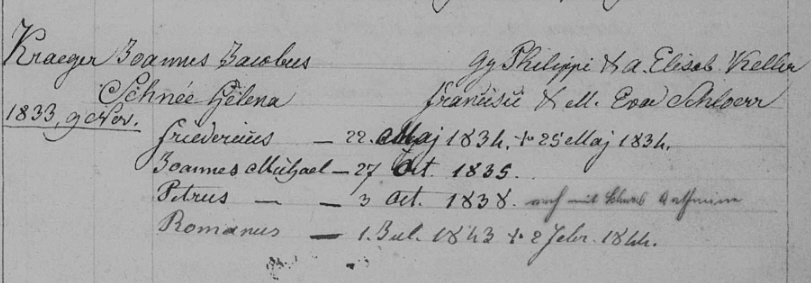 Kraeger Joannes Jacobus Gg Philippi & A. Elisab Keller
Schnée Helena Francisci & M. Eva Schloerr
1833, 9 Nov.
Fridericus — 22. Maj 1834. + 25 Maj 1834.
Joannes Michael — 27 Oct 1835.
Petrus — — 3 Oct. 1838. mit
Romanus — 1. Jul. 1843 + 2 Febr. 1844.